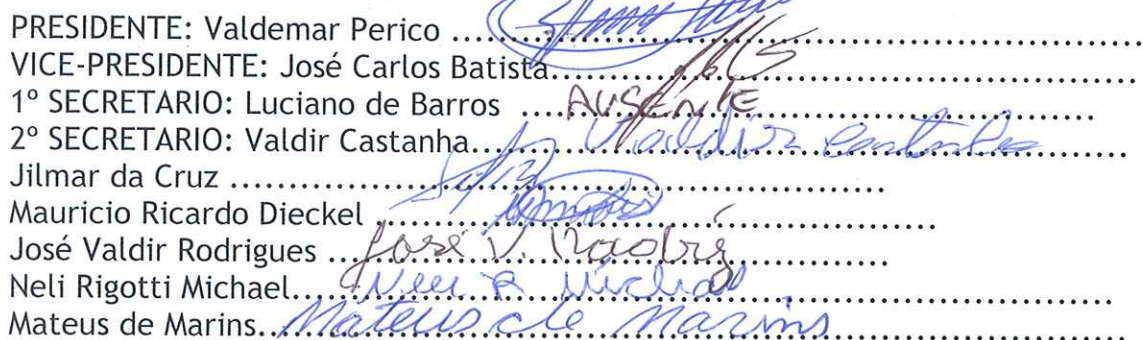 PRESIDENTE: Valdemar Perico ....................
VICE-PRESIDENTE: José Carlos Batista....................
1º SECRETARIO: Luciano de Barros .... AUSENTE
2º SECRETARIO: Valdir Castanha.... Valdir Castanha
Jilmar da Cruz ....................
Mauricio Ricardo Dieckel ....................
José Valdir Rodrigues ... José V. Rodrig
Neli Rigotti Michael.... Neli R Michael
Mateus de Marins.. Mateus de Marins